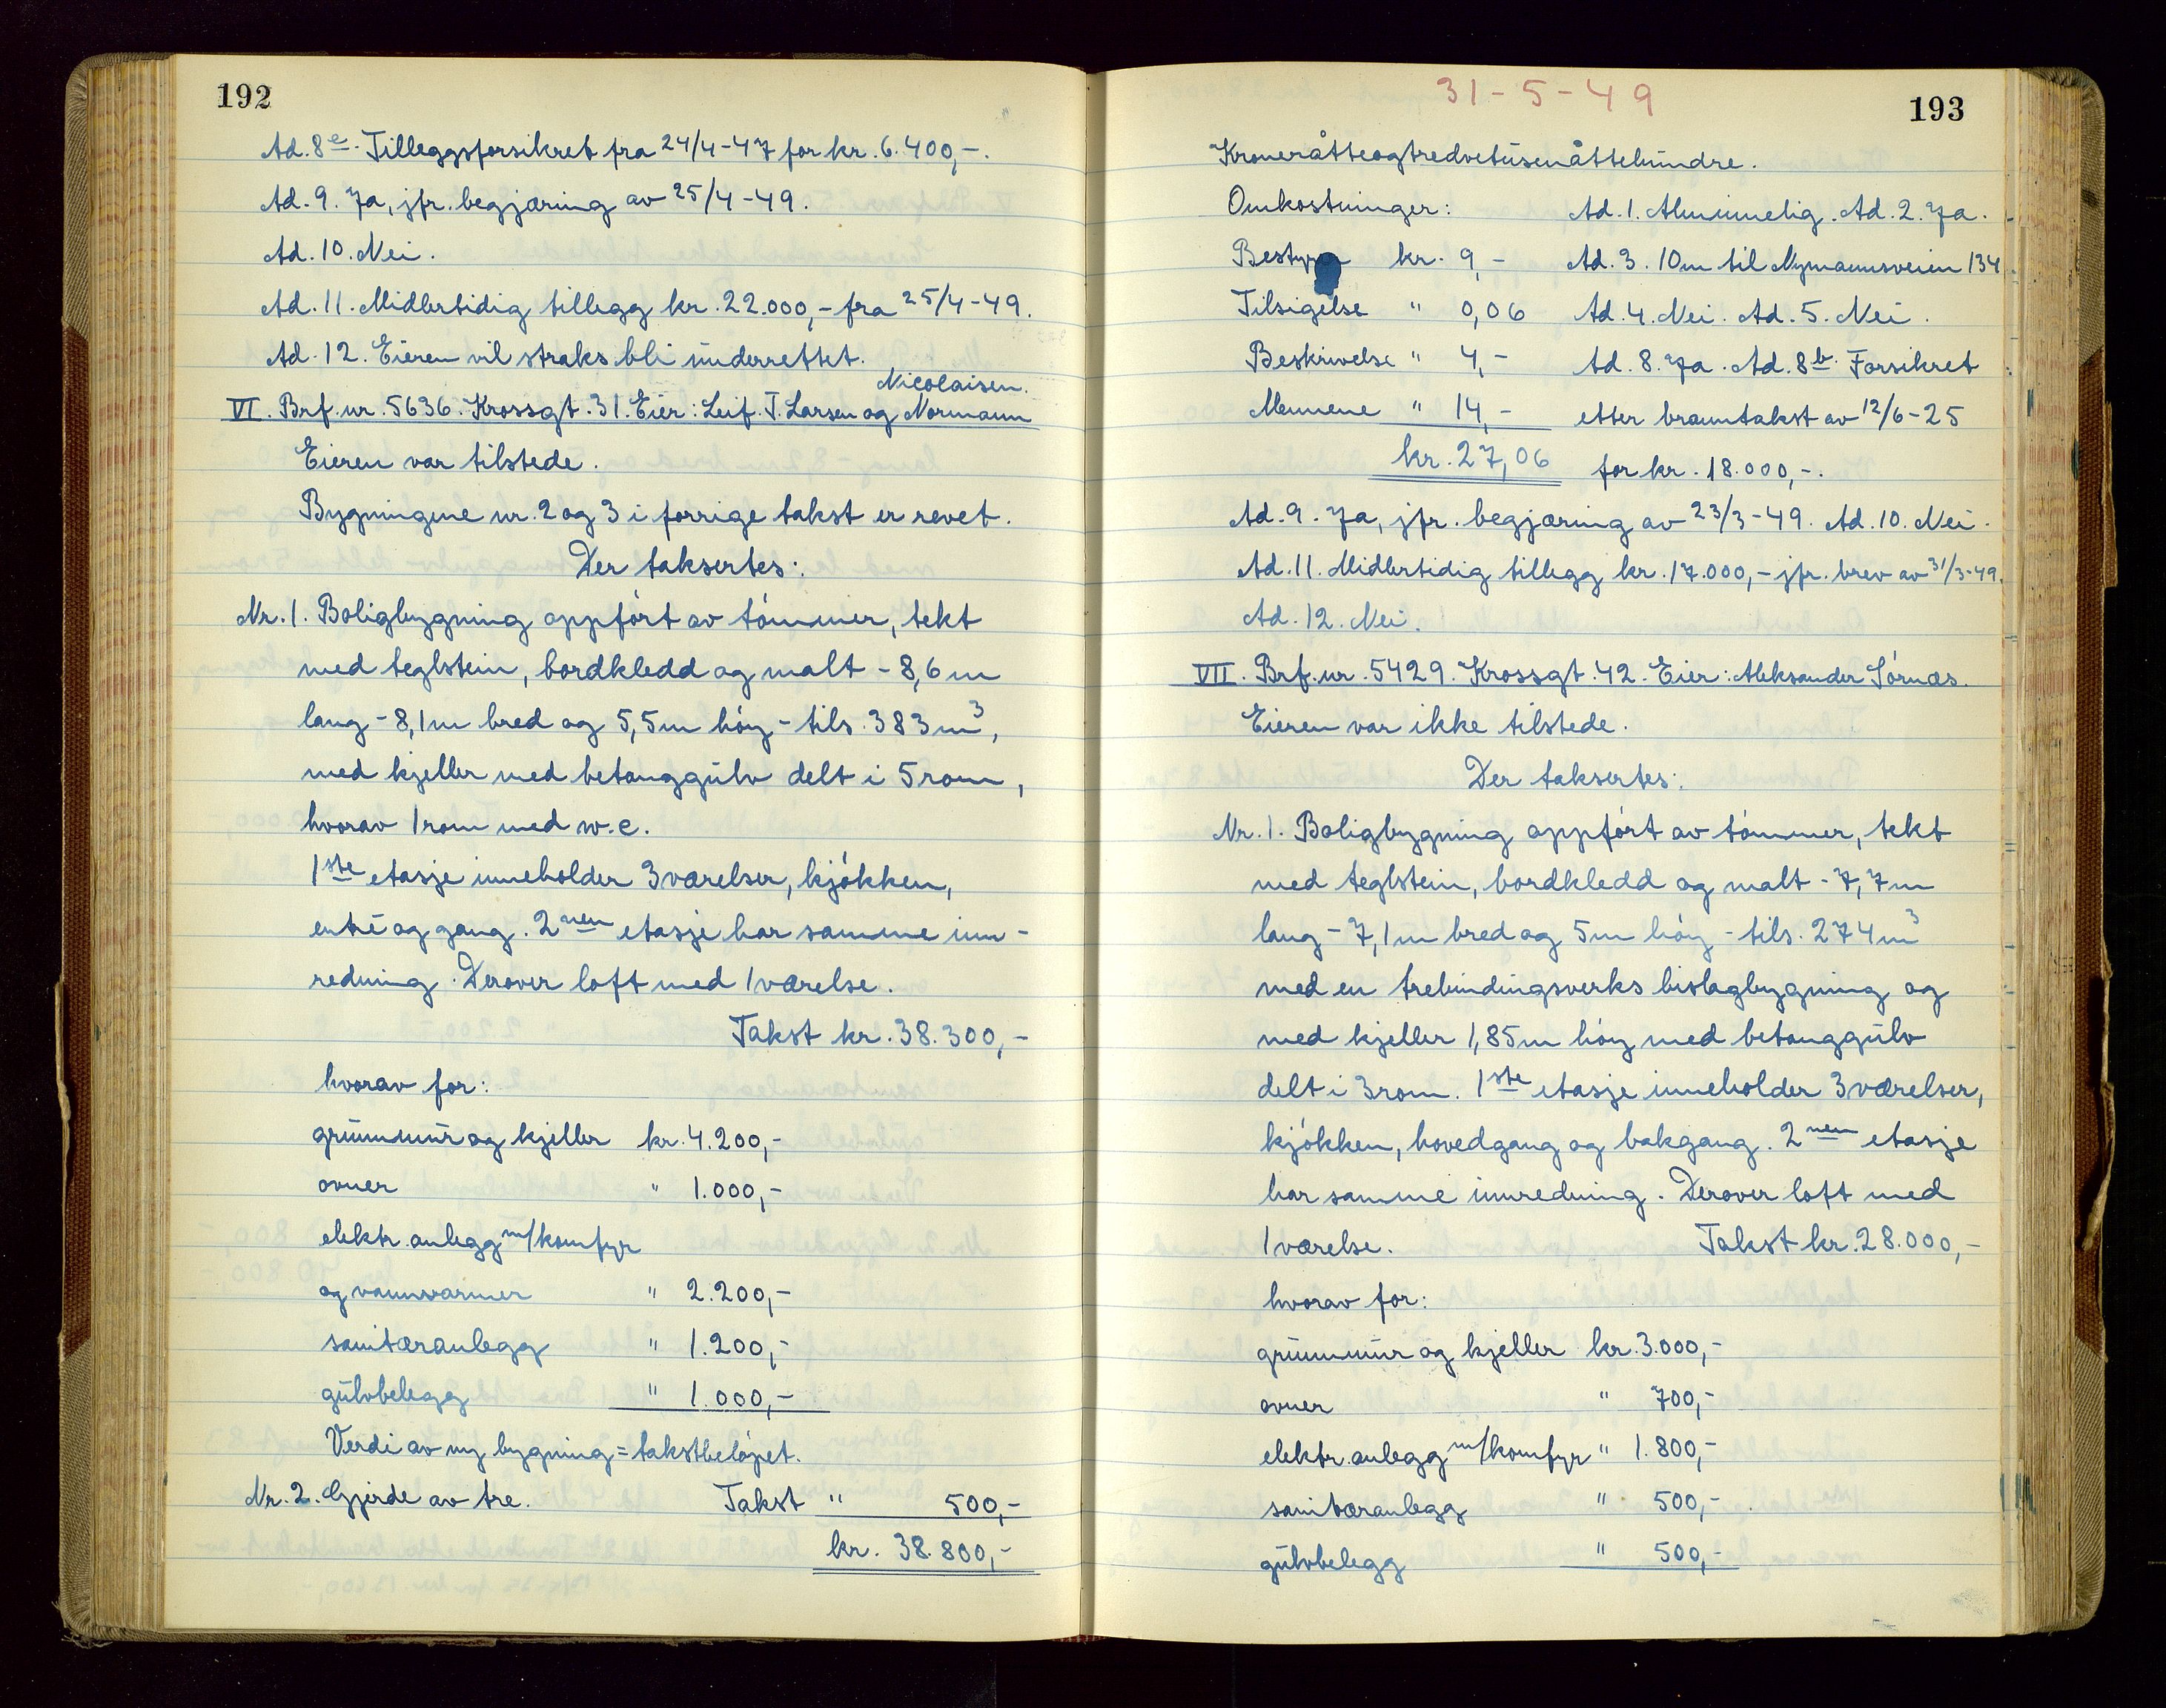 192
Ad. 8e. Tilleggsforsikret fra 24/4-47 for kr. 6.400,-.
Ad. 9. Ja, jfr. begjæring av 25/4-49.
Ad. 10. Nei.
Ad. 11. Midlertidig tillegg kr. 22.000,- fra 25/4-49.
Ad. 12. Eieren vil straks bli underrettet.
Nicolaisen.
VI. Brf. nr. 5636. Krossgt. 31. Eier: Leif T. Larsen og Normann
Eieren var tilstede.
Bygningene nr. 2 og 3 i forrige takst er revet.
Der taksertes:
Nr. 1. Boligbygning oppført av tømmer, tekt
med teglstein, bordkledd og malt - 8,6 m
lang - 8,1 m bred og 5,5 m høy - tils. 383 m³,
med kjeller med betonggulv delt i 5 rom,
hvorav 1 rom med w.c.
1ste etasje inneholder 3 værelser, kjøkken,
entré og gang. 2nen etasje har samme inn-
redning. Derover loft med 1 værelse.
Takst kr. 38.300,-
hvorav for:
grunnmur og kjeller kr. 4.200,-
ovner " 1.000,-
elektr. anlegg m/komfyr
og vannvarmer " 2.200,-
sanitæranlegg " 1.200,-
gulvbelegg " 1.000,-
Verdi av ny bygning = takstbeløpet.
Nr. 2. Gjerde av tre. Takst " 500,-
kr. 38.800,-
31-5-49
193
Kroneråtteogtredvetusenåttehundre.
Omkostninger: Ad. 1. Alminnelig. Ad. 2. Ja.
kr. 9,- Ad. 3. 10 m til Nymannsveien 134
Tilsigelse " 0,06 Ad. 4. Nei. Ad. 5. Nei.
Beskrivelse " 4,- Ad. 8. Ja. Ad. 8b. Forsikret
Mennene " 14,- etter branntakst av 12/6-25
kr. 27,06 for kr. 18.000,-.
Ad. 9. Ja, jfr. begjæring av 23/3-49. Ad. 10. Nei.
Ad. 11. Midlertidig tillegg kr. 17.000,- jfr. brev av 31/3-49.
Ad. 12. Nei.
VII. Brf. nr. 5429. Krossgt. 42. Eier: Aleksander Sørnæs.
Eieren var ikke tilstede.
Der taksertes:
Nr. 1. Boligbygning oppført av tømmer, tekt
med teglstein, bordkledd og malt - 7,7 m
lang - 7,1 m bred og 5 m høy - tils. 274 m³
med en trebindingsverks bislagbygning og
med kjeller 1,85 m høy med betonggulv
delt i 3 rom. 1ste etasje inneholder 3 værelser,
kjøkken, hovedgang og bakgang. 2nen etasje
har samme innredning. Derover loft med
1 værelse. Takst kr. 28.000,-
hvorav for:
grunnmur og kjeller kr. 3.000,-
ovner " 700,-
elektr. anlegg m/komfyr " 1.800,-
sanitæranlegg " 500,-
gulvbelegg " 500,-